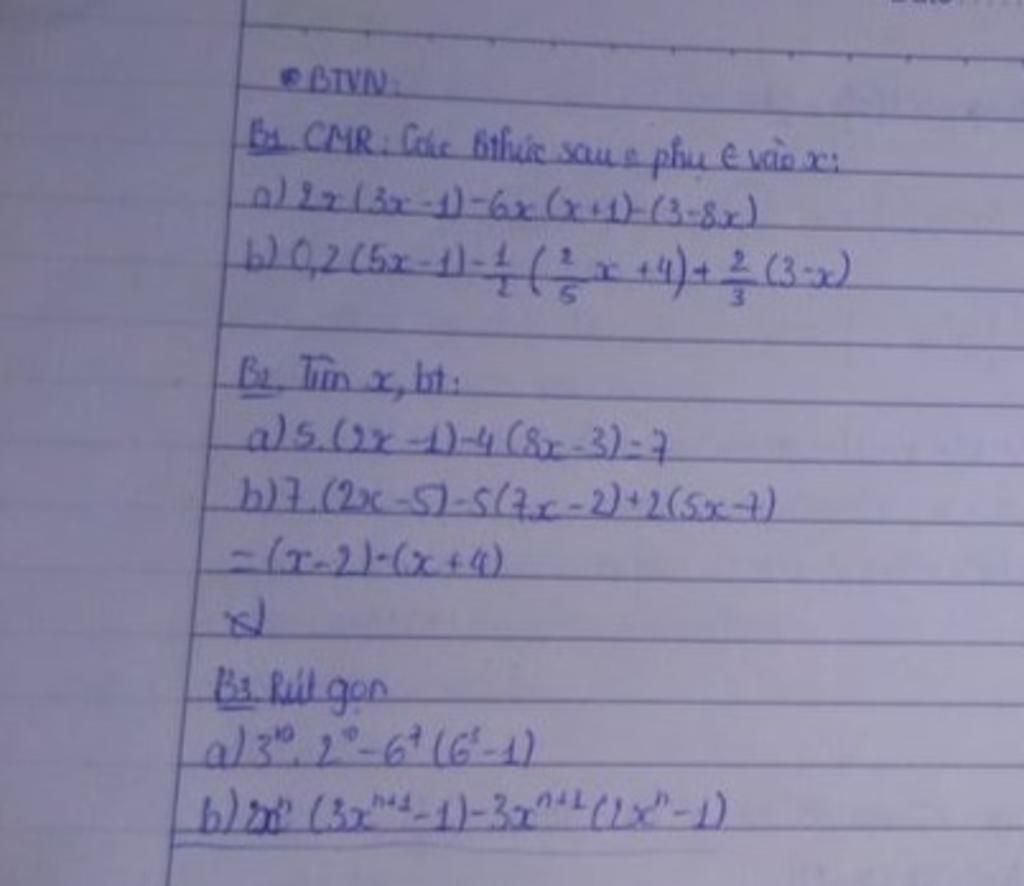 • BTVN:
B1 CMR: Các Bthức sau o phụ ∈ vào x:
a) 2x(3x-1)-6x(x+1)-(3-8x)
b) 0,2(5x-1)-1/2(2/5x+4)+2/3(3-x)
B2. Tìm x, bt:
a) 5.(2x-1)-4(8x-3)=7
b) 7.(2x-5)-5(7x-2)+2(5x-7)
=(x-2)-(x+4)
B3 Rút gọn
a) 3¹⁰.2¹⁰-6⁷(6³-1)
b) 2xⁿ(3xⁿ⁺¹-1)-3xⁿ⁺¹(2xⁿ-1)